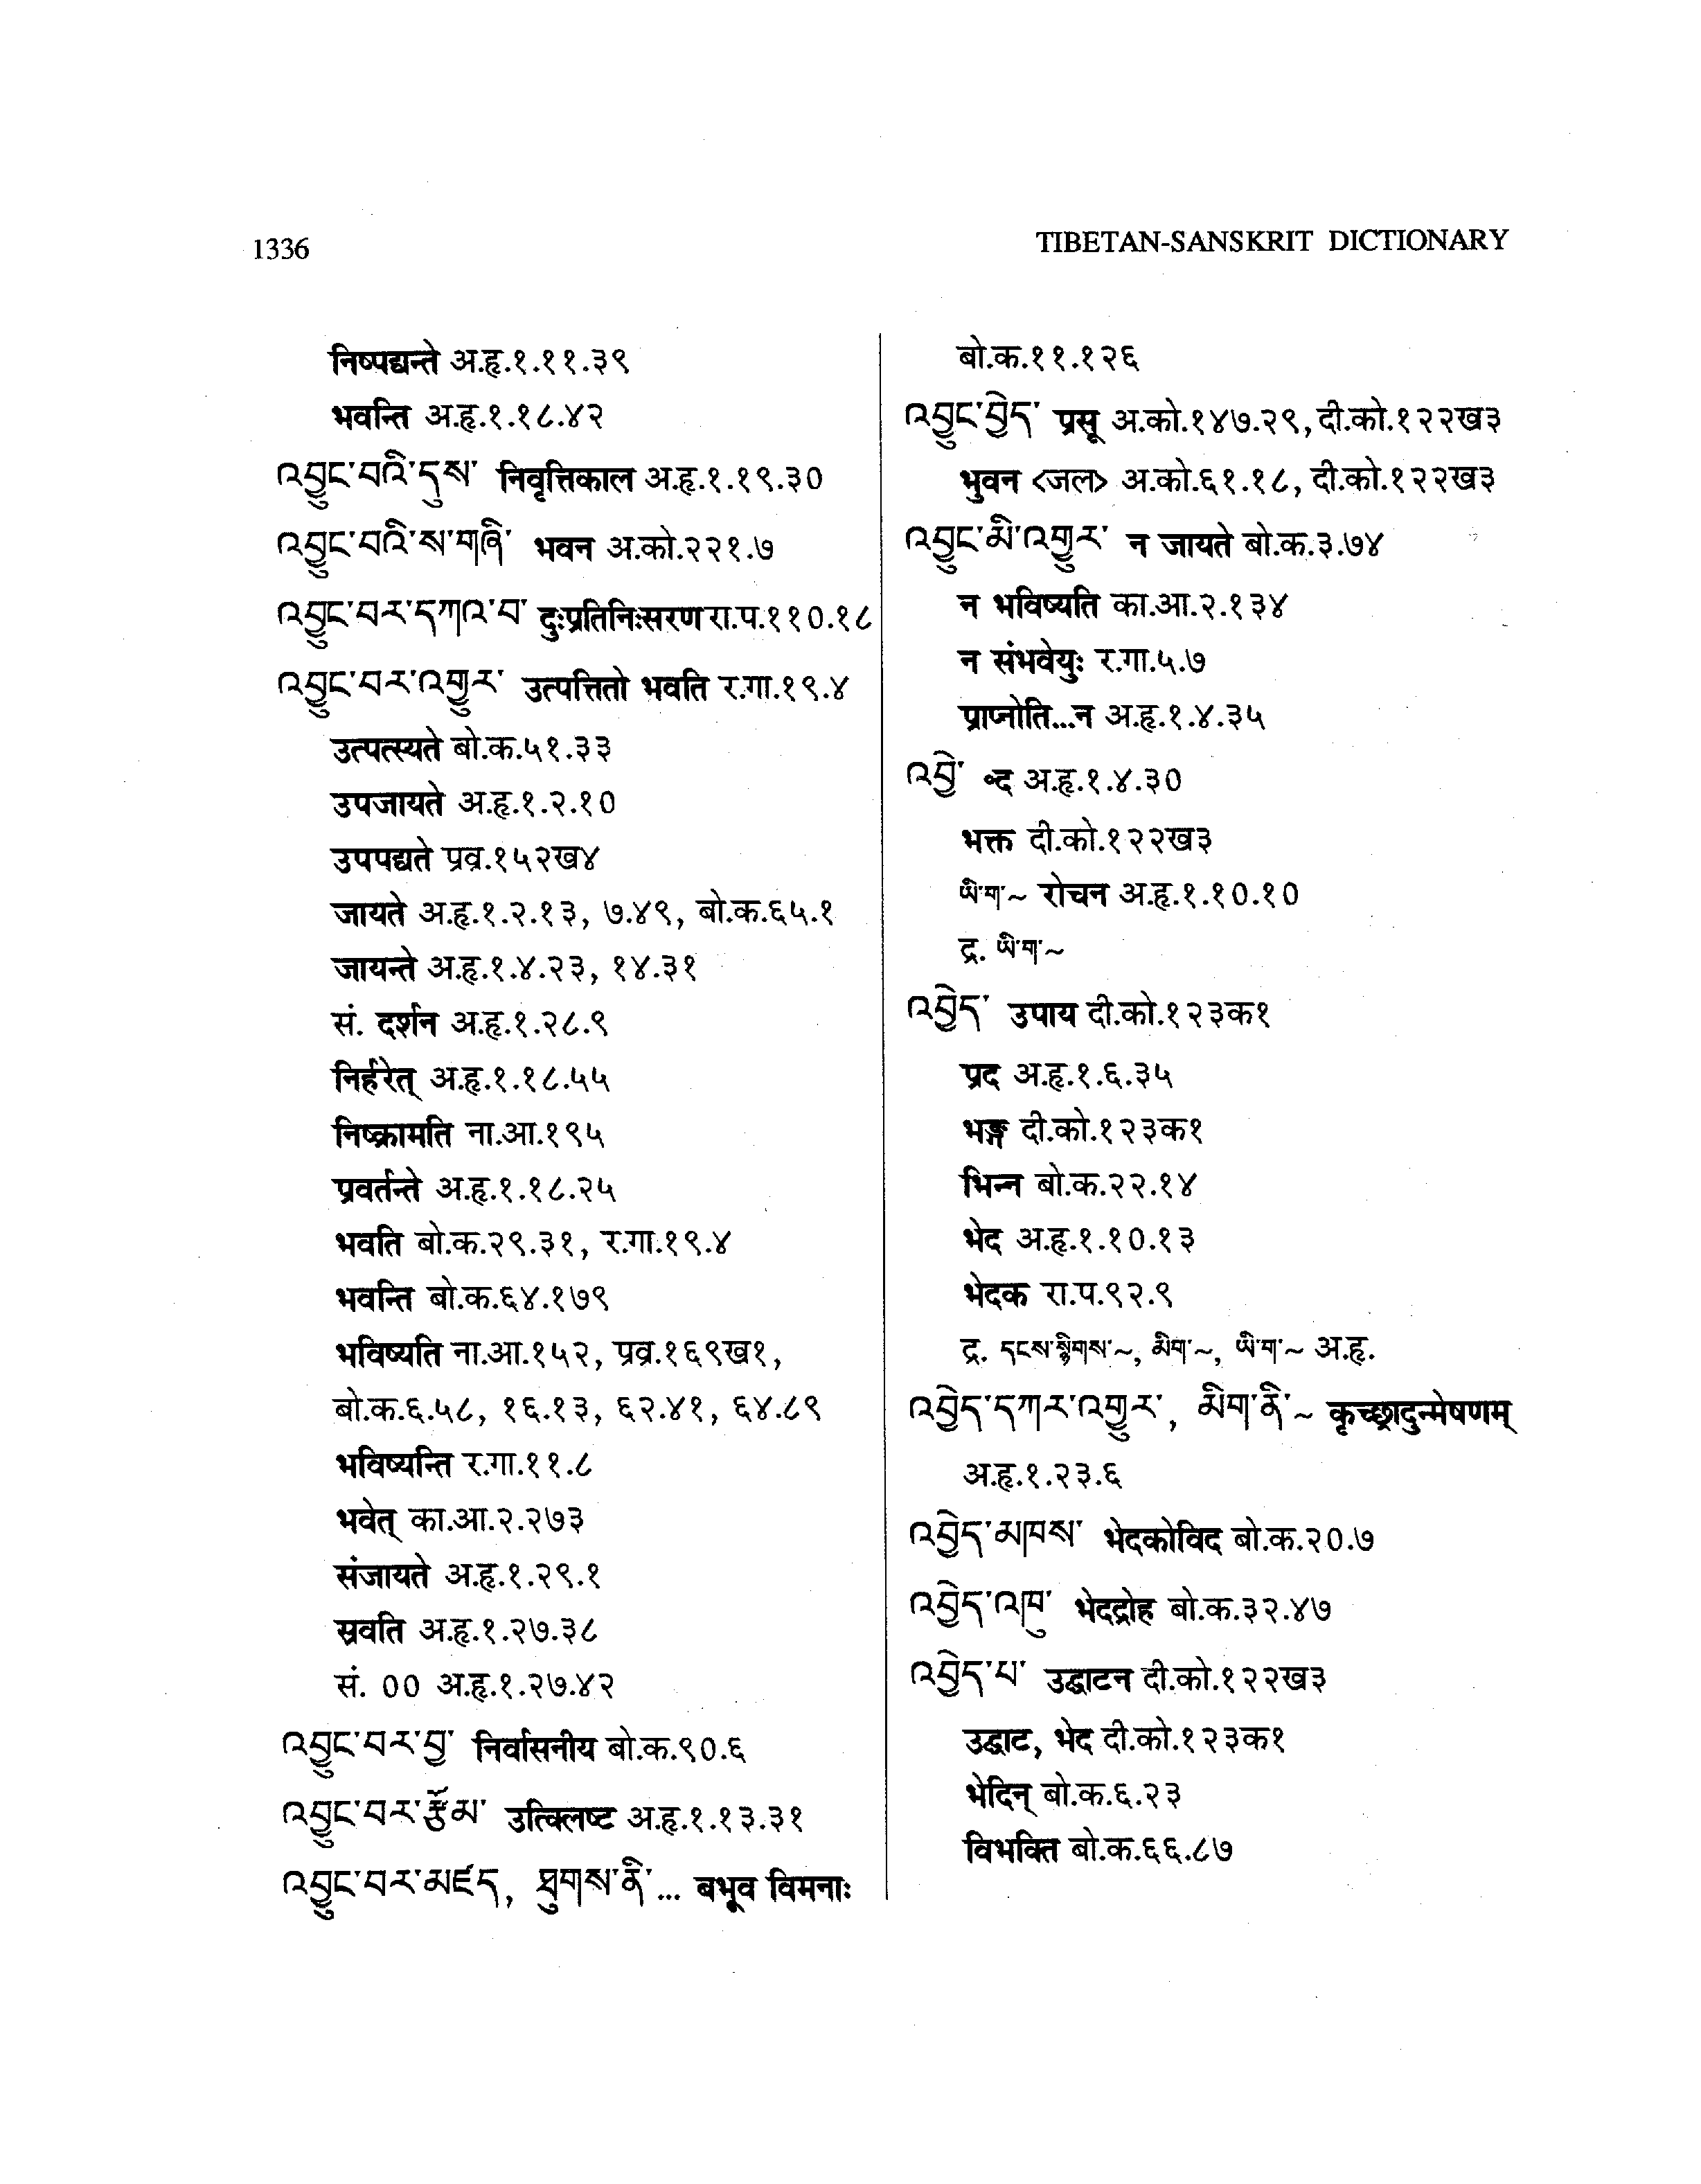 1336
TIBETAN-SANSKRIT DICTIONARY
निष्पद्यन्ते अ.हृ.१.११.३९
भवन्ति अ.हृ.१.१८.४२
འབྱུང་བའི་དུས་ निवृत्तिकाल अ.हृ.१.१९.३०
འབྱུང་བའི་ས་གཞི་ भवन अ.को.२२१.७
འབྱུང་བར་དཀའ་བ་ दुःप्रतिनिःसरण रा.प.११०.१८
འབྱུང་བར་འགྱུར་ उत्पत्तितो भवति र.गा.१९.४
उत्पत्स्यते बो.क.५१.३३
उपजायते अ.हृ.१.२.१०
उपपद्यते प्रव्र.१५२ख४
जायते अ.हृ.१.२.१३, ७.४९, बो.क.६५.१
जायन्ते अ.हृ.१.४.२३, १४.३१
सं. दर्शन अ.हृ.१.२८.९
निर्हरेत् अ.हृ.१.१८.५५
निष्क्रामति ना.आ.१९५
प्रवर्तन्ते अ.हृ.१.१८.२५
भवति बो.क.२९.३१, र.गा.१९.४
भवन्ति बो.क.६४.१७९
भविष्यति ना.आ.१५२, प्रव्र.१६९ख१,
बो.क.६.५८, १६.१३, ६२.४१, ६४.८९
भविष्यन्ति र.गा.११.८
भवेत् का.आ.२.२७३
संजायते अ.हृ.१.२९.१
स्रवति अ.हृ.१.२७.३८
सं. ०० अ.हृ.१.२७.४२
འབྱུང་བར་བྱ་ निर्वासनीय बो.क.९०.६
འབྱུང་བར་རྩོམ་ उत्क्लिष्ट अ.हृ.१.१३.३१
འབྱུང་བར་མཛད, ཐུགས་ནི་... बभूव विमनाः
बो.क.११.१२६
འབྱུང་བྱེད་ प्रसू अ.को.१४७.२९, दी.को.१२२ख३
भुवन <जल> अ.को.६१.१८, दी.को.१२२ख३
འབྱུང་མི་འགྱུར་ न जायते बो.क.३.७४
न भविष्यति का.आ.२.१३४
न संभवेयुः र.गा.५.७
प्राप्नोति...न अ.हृ.१.४.३५
འབྱེ་ ॰द अ.हृ.१.४.३०
भक्त दी.को.१२२ख३
ཡི་ག་~ रोचन अ.हृ.१.१०.१०
द्र. ཡི་ག་~
འབྱེད་ उपाय दी.को.१२३क१
प्रद अ.हृ.१.६.३५
भङ्ग दी.को.१२३क१
भिन्न बो.क.२२.१४
भेद अ.हृ.१.१०.१३
भेदक रा.प.९२.९
द्र. དངས་སྙིགས་~, མིག་~, ཡི་ག་~ अ.हृ.
འབྱེད་དཀར་འགྱུར་, མིག་ནི་~ कृच्छ्रादुन्मेषणम्
अ.हृ.१.२३.६
འབྱེད་མཁས་ भेदकोविद बो.क.२०.७
འབྱེད་འཁུ་ भेदद्रोह बो.क.३२.४७
འབྱེད་པ་ उद्घाटन दी.को.१२२ख३
उद्घाट, भेद दी.को.१२३क१
भेदिन् बो.क.६.२३
विभक्ति बो.क.६६.८७